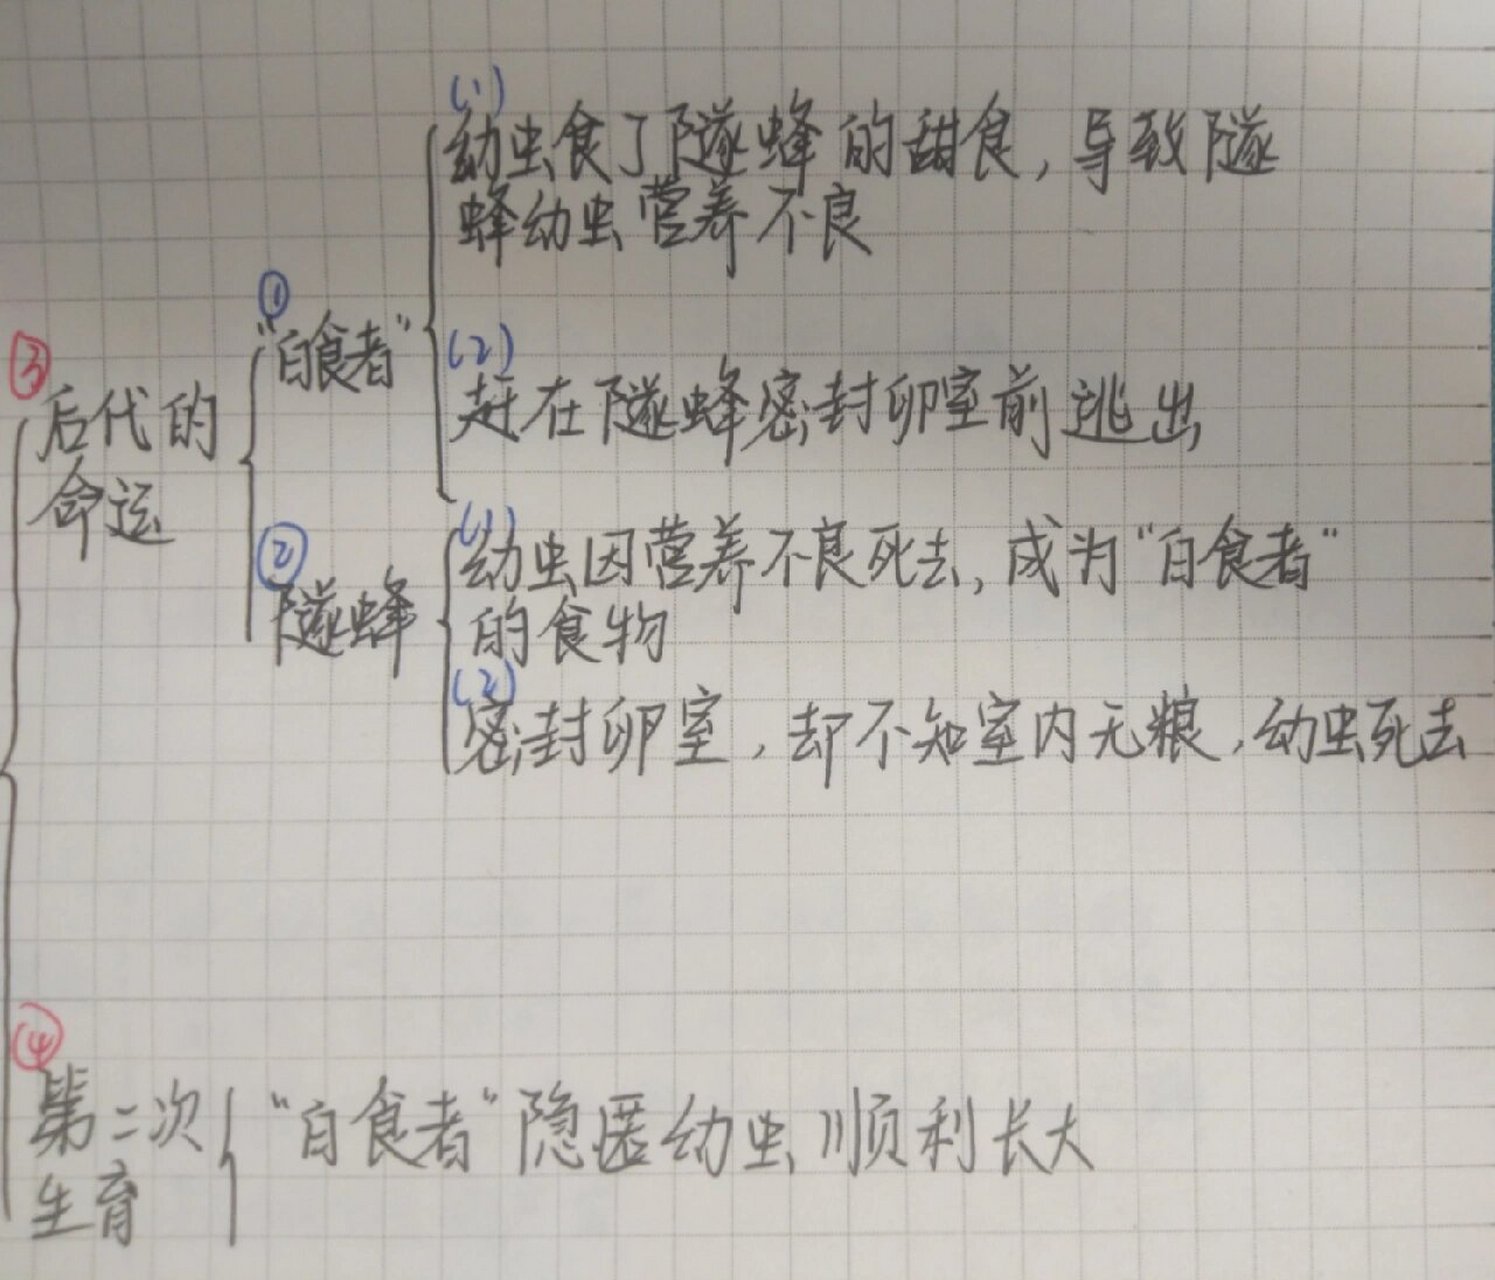 (1)
幼虫食了隧蜂的甜食,导致隧
蜂幼虫营养不良
①
"白食者"
(2)
赶在隧蜂密封卵室前逃出
③
后代的
命运
②
隧蜂
(1)
幼虫因营养不良死去,成为"白食者"
的食物
(2)
密封卵室,却不知室内无粮,幼虫死去
④
第二次
生育
"白食者"隐匿幼虫顺利长大